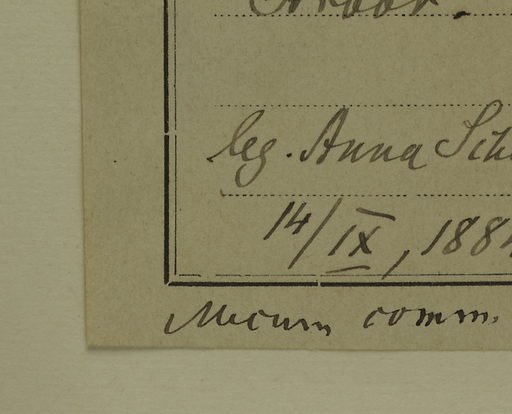 leg. Anna Sch
14/IX, 188
Mecum comm.